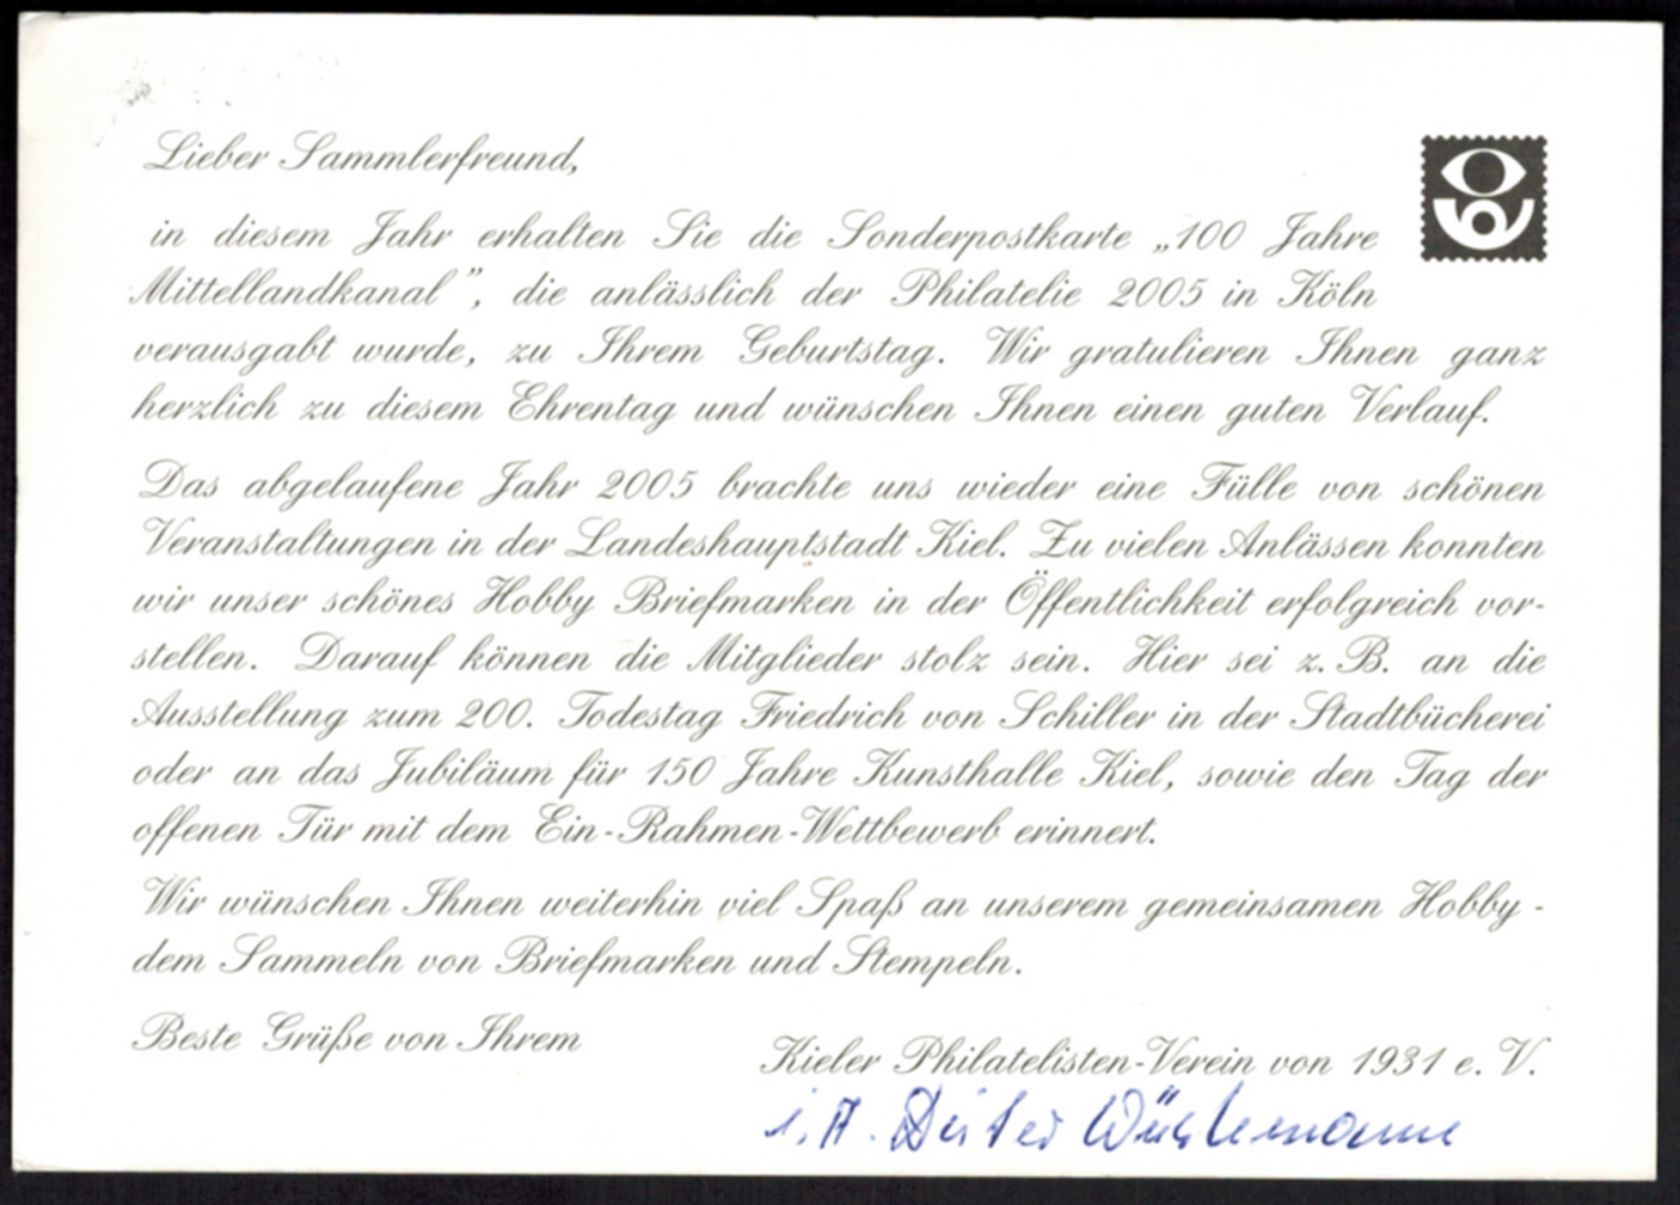 Lieber Sammlerfreund,
in diesem Jahr erhalten Sie die Sonderpostkarte „100 Jahre
Mittellandkanal”, die anlässlich der Philatelie 2005 in Köln
verausgabt wurde, zu Ihrem Geburtstag. Wir gratulieren Ihnen ganz
herzlich zu diesem Ehrentag und wünschen Ihnen einen guten Verlauf.
Das abgelaufene Jahr 2005 brachte uns wieder eine Fülle von schönen
Veranstaltungen in der Landeshauptstadt Kiel. Zu vielen Anlässen konnten
wir unser schönes Hobby Briefmarken in der Öffentlichkeit erfolgreich vor-
stellen. Darauf können die Mitglieder stolz sein. Hier sei z. B. an die
Ausstellung zum 200. Todestag Friedrich von Schiller in der Stadtbücherei
oder an das Jubiläum für 150 Jahre Kunsthalle Kiel, sowie den Tag der
offenen Tür mit dem Ein-Rahmen-Wettbewerb erinnert.
Wir wünschen Ihnen weiterhin viel Spaß an unserem gemeinsamen Hobby -
dem Sammeln von Briefmarken und Stempeln.
Beste Grüße von Ihrem
Kieler Philatelisten-Verein von 1931 e. V.
i. A. Dieter